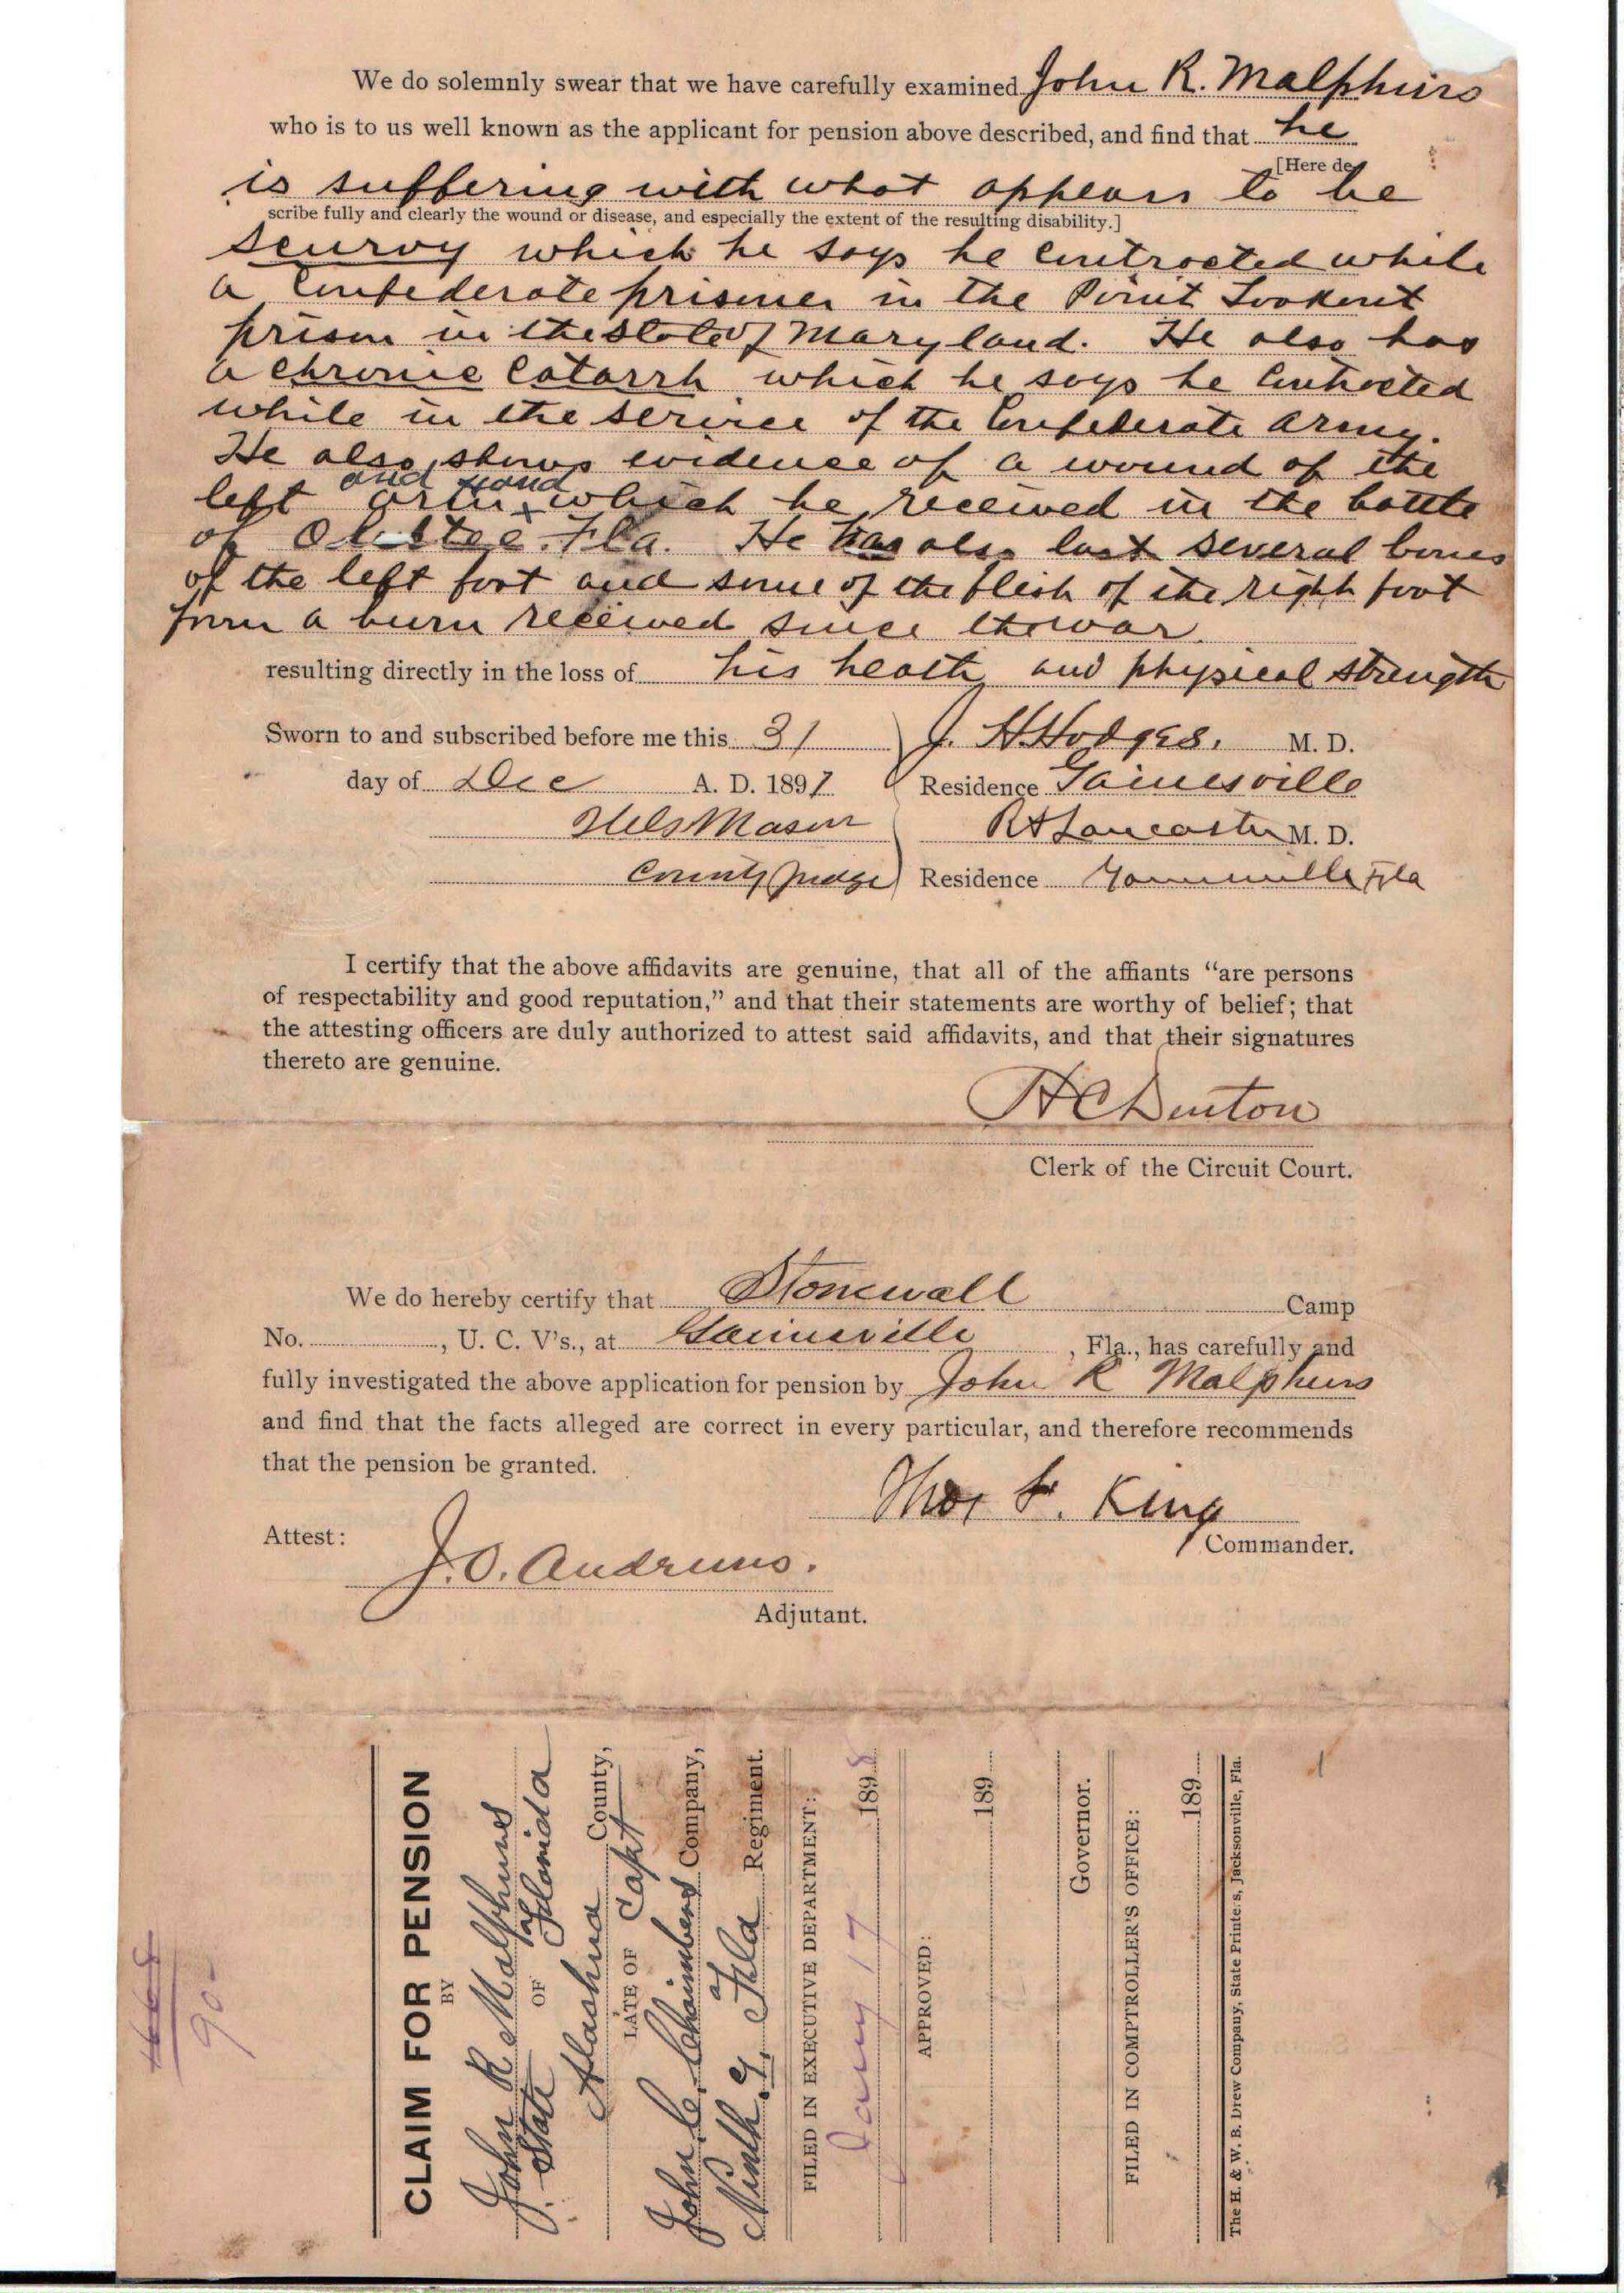 We do solemnly swear that we have carefully examined John R. Malphurs
who is to us well known as the applicant for pension above described, and find that he
[Here de-
is suffering with what appears to be
scribe fully and clearly the wound or disease, and especially the extent of the resulting disability.]
scurvy which he says he contracted while
a Confederate prisoner in the Point Lookout
prison in the state of Maryland. He also has
a chronic Catarrh which he says he contracted
while in the service of the Confederate Army.
He also shows evidence of a wound of the
and hand
left arm x which he received in the battle
of Olustee. Fla. He has also lost several bones
of the left foot and some of the flesh of the right foot
from a burn received since the war.
resulting directly in the loss of his health and physical strength
Sworn to and subscribed before me this 31 J. H. Hodges. M. D.
day of Dec A. D. 1897 Residence Gainesville
Mason R H Lancaster M. D.
County Judge Residence Gainesville Fla
I certify that the above affidavits are genuine, that all of the affiants “are persons
of respectability and good reputation,” and that their statements are worthy of belief; that
the attesting officers are duly authorized to attest said affidavits, and that their signatures
thereto are genuine.
H C Denton
Clerk of the Circuit Court.
We do hereby certify that Stonewall Camp
No. , U. C. V's., at Gainesville , Fla., has carefully and
fully investigated the above application for pension by John R Malphurs
and find that the facts alleged are correct in every particular, and therefore recommends
that the pension be granted.
Thos F. King
Commander.
Attest:
J. O. Andrews.
Adjutant.
CLAIM FOR PENSION
BY
John R Malphurs
OF
State of Florida
Alachua County,
LATE OF Capt
John C. Chambers Company,
Ninth, 9, of Fla Regiment.
FILED IN EXECUTIVE DEPARTMENT:
Jany 17 1898
APPROVED:
189
Governor.
FILED IN COMPTROLLER'S OFFICE:
189
The H. & W. B. Drew Company, State Printers, Jacksonville, Fla.
90-